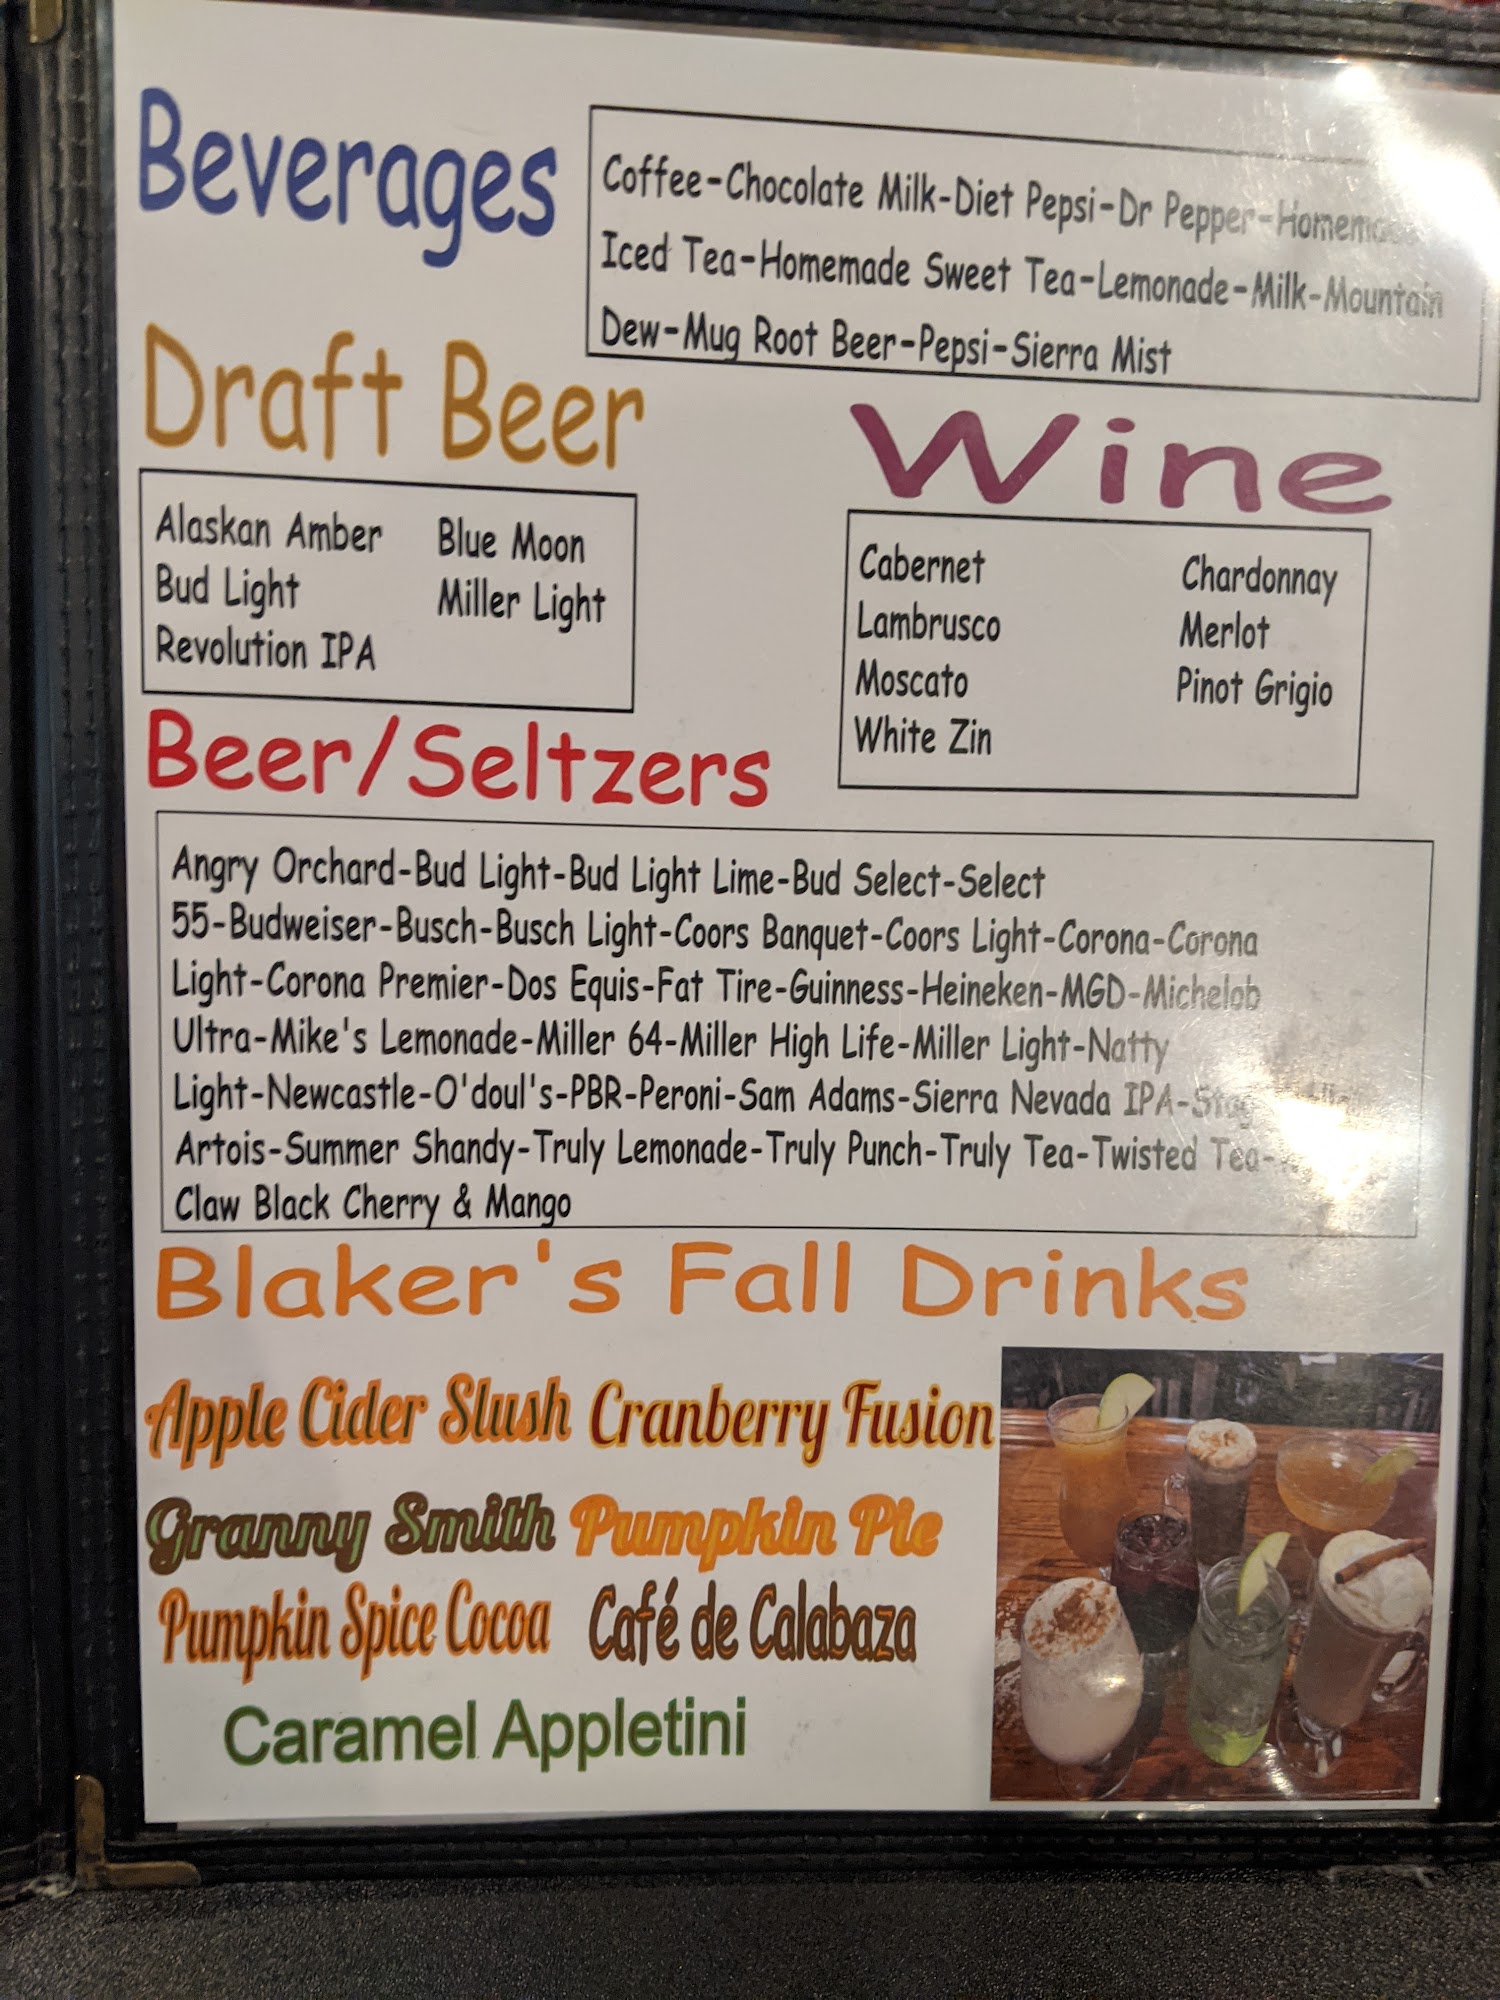 Beverages
Coffee-Chocolate Milk-Diet Pepsi-Dr Pepper-Homemade
Iced Tea-Homemade Sweet Tea-Lemonade-Milk-Mountain
Dew-Mug Root Beer-Pepsi-Sierra Mist
Draft Beer
Alaskan Amber Blue Moon
Bud Light Miller Light
Revolution IPA
Wine
Cabernet Chardonnay
Lambrusco Merlot
Moscato Pinot Grigio
White Zin
Beer/Seltzers
Angry Orchard-Bud Light-Bud Light Lime-Bud Select-Select
55-Budweiser-Busch-Busch Light-Coors Banquet-Coors Light-Corona-Corona
Light-Corona Premier-Dos Equis-Fat Tire-Guinness-Heineken-MGD-Michelob
Ultra-Mike's Lemonade-Miller 64-Miller High Life-Miller Light-Natty
Light-Newcastle-O'doul's-PBR-Peroni-Sam Adams-Sierra Nevada IPA-
Artois-Summer Shandy-Truly Lemonade-Truly Punch-Truly Tea-Twisted Tea-
Claw Black Cherry & Mango
Blaker's Fall Drinks
Apple Cider Slush Cranberry Fusion
Granny Smith Pumpkin Pie
Pumpkin Spice Cocoa Café de Calabaza
Caramel Appletini